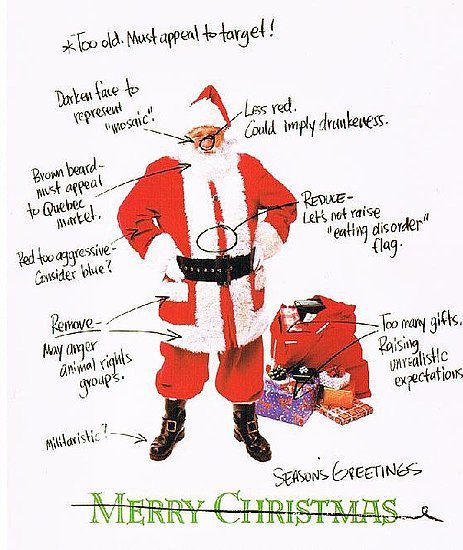 *Too old. Must appeal to target!
Darken face to
represent
"mosaic".
Less red.
Could imply drunkeness.
Brown beard-
must appeal
to Quebec
market.
REDUCE-
Let's not raise
"eating disorder"
flag.
Red too aggressive-
Consider blue?
Remove-
May anger
animal rights
groups.
Too many gifts.
Raising
unrealistic
expectations
Militaristic?
SEASON'S GREETINGS
MERRY CHRISTMAS